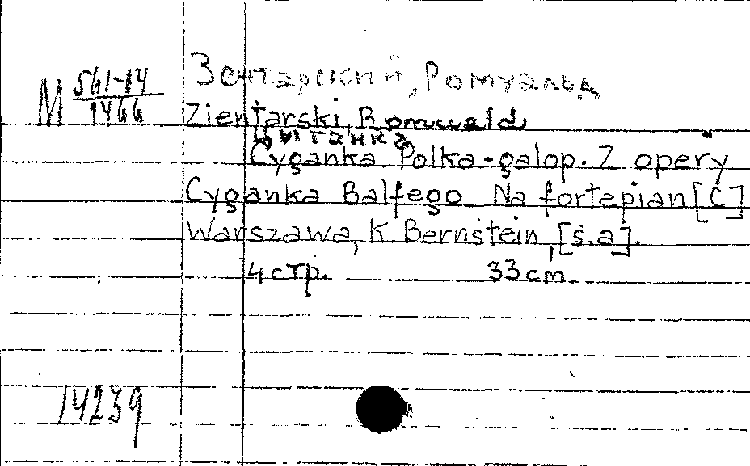 М 561-14
1466
Зентарский, Ромуальд
Zientarski, Romuald
Цыганка
Cyganka Polka-galop. Z opery
Cyganka Balfego Na fortepian [C]
Warszawa, K. Bernstein, [s.a].
4 стр. 33 cm.
14239